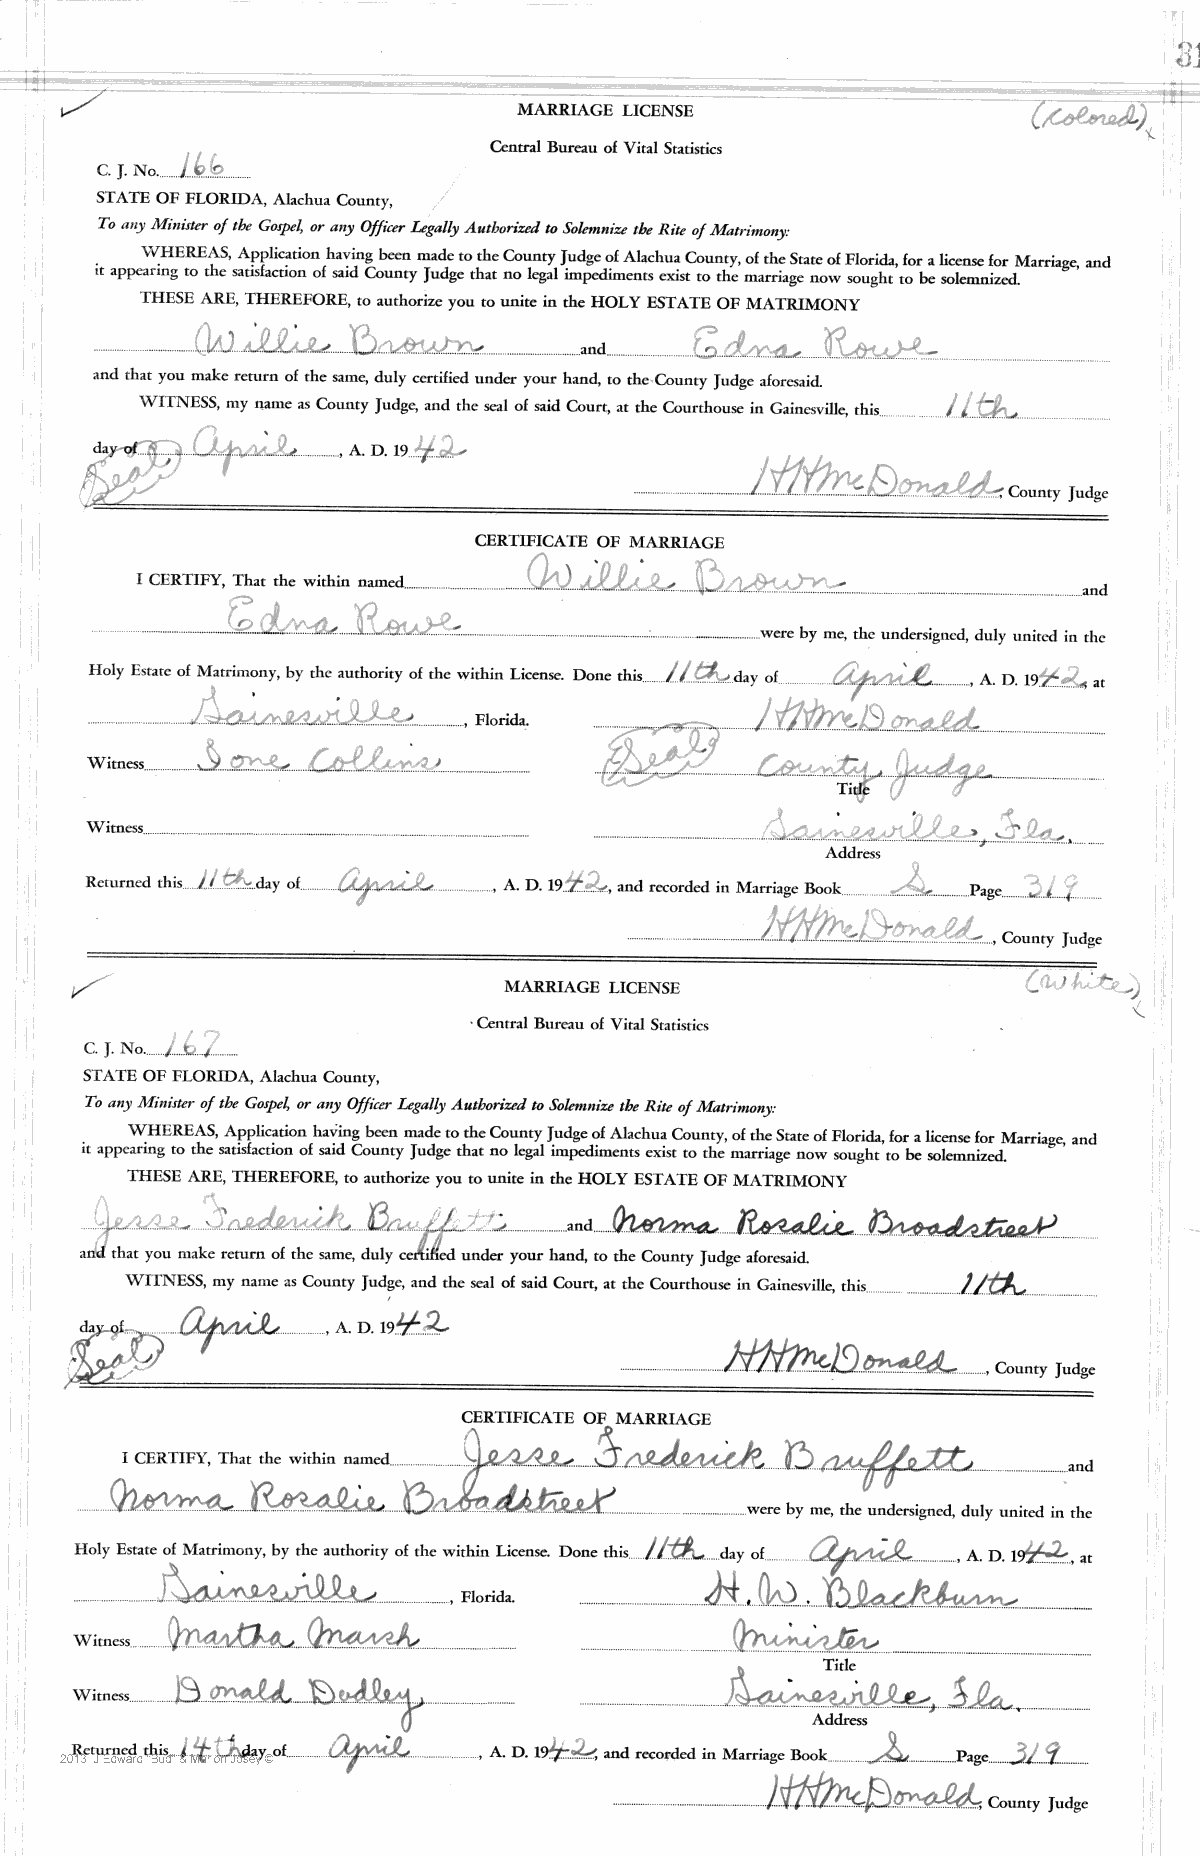 31
MARRIAGE LICENSE
(Colored)
Central Bureau of Vital Statistics
C. J. No. 166
STATE OF FLORIDA, Alachua County,
To any Minister of the Gospel, or any Officer Legally Authorized to Solemnize the Rite of Matrimony:
WHEREAS, Application having been made to the County Judge of Alachua County, of the State of Florida, for a license for Marriage, and
it appearing to the satisfaction of said County Judge that no legal impediments exist to the marriage now sought to be solemnized.
THESE ARE, THEREFORE, to authorize you to unite in the HOLY ESTATE OF MATRIMONY
Willie Brown and Edna Rowe
and that you make return of the same, duly certified under your hand, to the County Judge aforesaid.
WITNESS, my name as County Judge, and the seal of said Court, at the Courthouse in Gainesville, this 11th
day of April, A. D. 1942
(Seal) HHMcDonald, County Judge
CERTIFICATE OF MARRIAGE
I CERTIFY, That the within named Willie Brown and
Edna Rowe were by me, the undersigned, duly united in the
Holy Estate of Matrimony, by the authority of the within License. Done this 11th day of April, A. D. 1942, at
Gainesville, Florida. HHMcDonald
Witness Ione Collins (Seal) County Judge
Title
Witness Gainesville, Fla.
Address
Returned this 11th day of April, A. D. 1942, and recorded in Marriage Book S Page 319
HHMcDonald, County Judge
MARRIAGE LICENSE
(White)
Central Bureau of Vital Statistics
C. J. No. 167
STATE OF FLORIDA, Alachua County,
To any Minister of the Gospel, or any Officer Legally Authorized to Solemnize the Rite of Matrimony:
WHEREAS, Application having been made to the County Judge of Alachua County, of the State of Florida, for a license for Marriage, and
it appearing to the satisfaction of said County Judge that no legal impediments exist to the marriage now sought to be solemnized.
THESE ARE, THEREFORE, to authorize you to unite in the HOLY ESTATE OF MATRIMONY
Jesse Frederick Bruffett and Norma Rosalie Broadstreet
and that you make return of the same, duly certified under your hand, to the County Judge aforesaid.
WITNESS, my name as County Judge, and the seal of said Court, at the Courthouse in Gainesville, this 11th
day of April, A. D. 1942
(Seal) HHMcDonald, County Judge
CERTIFICATE OF MARRIAGE
I CERTIFY, That the within named Jesse Frederick Bruffett and
Norma Rosalie Broadstreet were by me, the undersigned, duly united in the
Holy Estate of Matrimony, by the authority of the within License. Done this 11th day of April, A. D. 1942, at
Gainesville, Florida. H. W. Blackburn
Witness Martha Marsh Minister
Title
Witness Donald Dudley Gainesville, Fla.
Address
Returned this 14th day of April, A. D. 1942, and recorded in Marriage Book S Page 319
2013 J Edward "Bud" & Marion Josey ©
HHMcDonald, County Judge